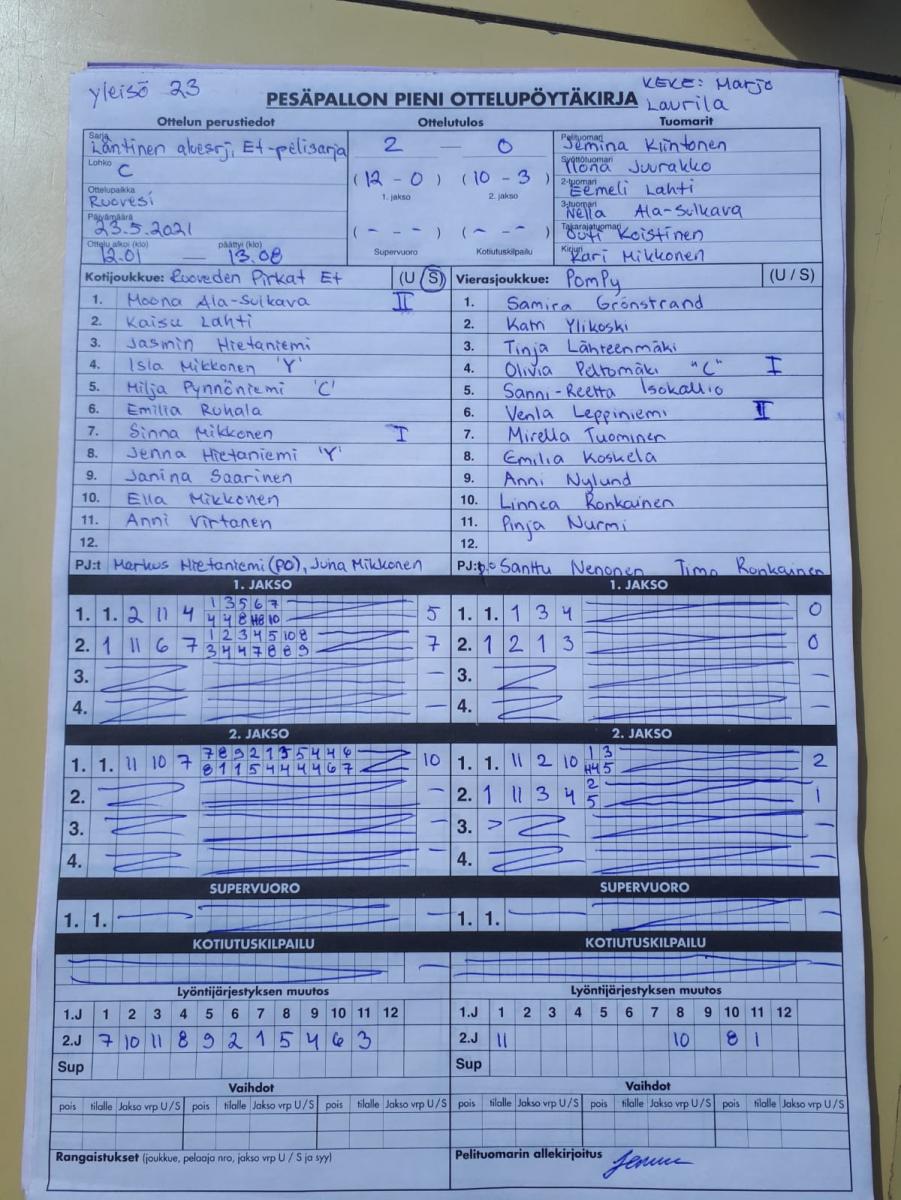 yleisö 23
KEKE: Marjo Laurila
PESÄPALLON PIENI OTTELUPÖYTÄKIRJA
Ottelun perustiedot
Ottelutulos
Tuomarit
Sarja
Läntinen aluesrj, E+-pelisarja
Lohko
C
Ottelupaikka
Ruovesi
Päivämäärä
23.5.2021
Ottelu alkoi (klo) päättyi (klo)
12.01 — 13.08
2 — 0
(12 - 0) (10 - 3)
1. jakso 2. jakso
( - - - ) ( - - - )
Supervuoro Kotiutuskilpailu
Pelituomari
Jemina Kiintonen
Syöttötuomari
Ilona Juurakko
2-tuomari
Eemeli Lahti
3-tuomari
Nella Ala-Sulkava
Takarajatuomari
Outi Koistinen
Kirjuri
Kari Mikkonen
Kotijoukkue: Ruoveden Pirkat E+ (U / S)
1. Moona Ala-Sulkava II
2. Kaisu Lahti
3. Jasmin Hietaniemi
4. Isla Mikkonen 'Y'
5. Milja Pynnöniemi 'C'
6. Emilia Ruhala
7. Sinna Mikkonen I
8. Jenna Hietaniemi 'Y'
9. Janina Saarinen
10. Ella Mikkonen
11. Anni Virtanen
12.
PJ:t Markus Hietaniemi (PO), Juha Mikkonen
Vierasjoukkue: PomPy (U / S)
1. Samira Grönstrand
2. Katri Ylikoski
3. Tinja Lähteenmäki
4. Olivia Peltomäki "C" I
5. Sanni-Reetta Isokallio
6. Venla Leppiniemi II
7. Mirella Tuominen
8. Emilia Koskela
9. Anni Nylund
10. Linnea Ronkainen
11. Pinja Nurmi
12.
PJ:t Santtu Nenonen Timo Ronkainen
1. JAKSO 1. JAKSO
1 3 5 6 7
1. 1. 2 11 4 5 1. 1. 1 3 4 0
1 2 3 4 5 10 8
2. 1 11 6 7 7 2. 1 2 1 3 0
3 4 4 7 8 8 9
3. — 3. —
4. — 4. —
2. JAKSO 2. JAKSO
7 8 9 2 1 3 5 4 4 6 1 3
1. 1. 11 10 7 10 1. 1. 11 2 10 2
8 1 1 5 4 4 4 4 6 7
2. — 2. 1 11 3 4 2 5 1
3. — 3. —
4. — 4. —
SUPERVUORO SUPERVUORO
1. 1. — 1. 1. —
KOTIUTUSKILPAILU KOTIUTUSKILPAILU
Lyöntijärjestyksen muutos Lyöntijärjestyksen muutos
1.J 1 2 3 4 5 6 7 8 9 10 11 12 1.J 1 2 3 4 5 6 7 8 9 10 11 12
2.J 7 10 11 8 9 2 1 5 4 6 3 2.J 11 10 8 1
Sup Sup
Vaihdot Vaihdot
pois tilalle Jakso vrp U/S pois tilalle Jakso vrp U/S pois tilalle Jakso vrp U/S pois tilalle Jakso vrp U/S pois tilalle Jakso vrp U/S pois tilalle Jakso vrp U/S
Rangaistukset (joukkue, pelaaja nro, jakso vrp U / S ja syy) Pelituomarin allekirjoitus